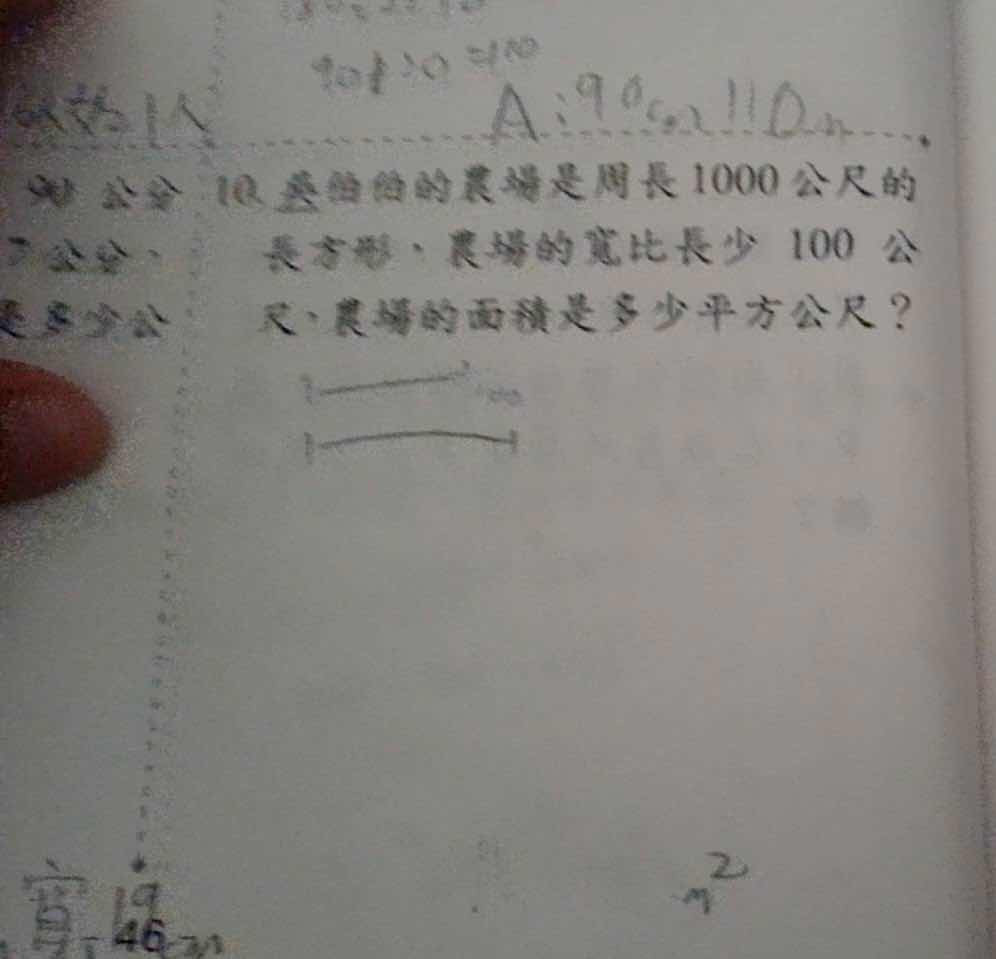 90+20=110
A:90cm 110m
公分 10. 叁伯伯的農場是周長1000公尺的
公分、 長方形,農場的寬比長少 100 公
是多少公 尺,農場的面積是多少平方公尺?
100
m²
寬 19
46 m